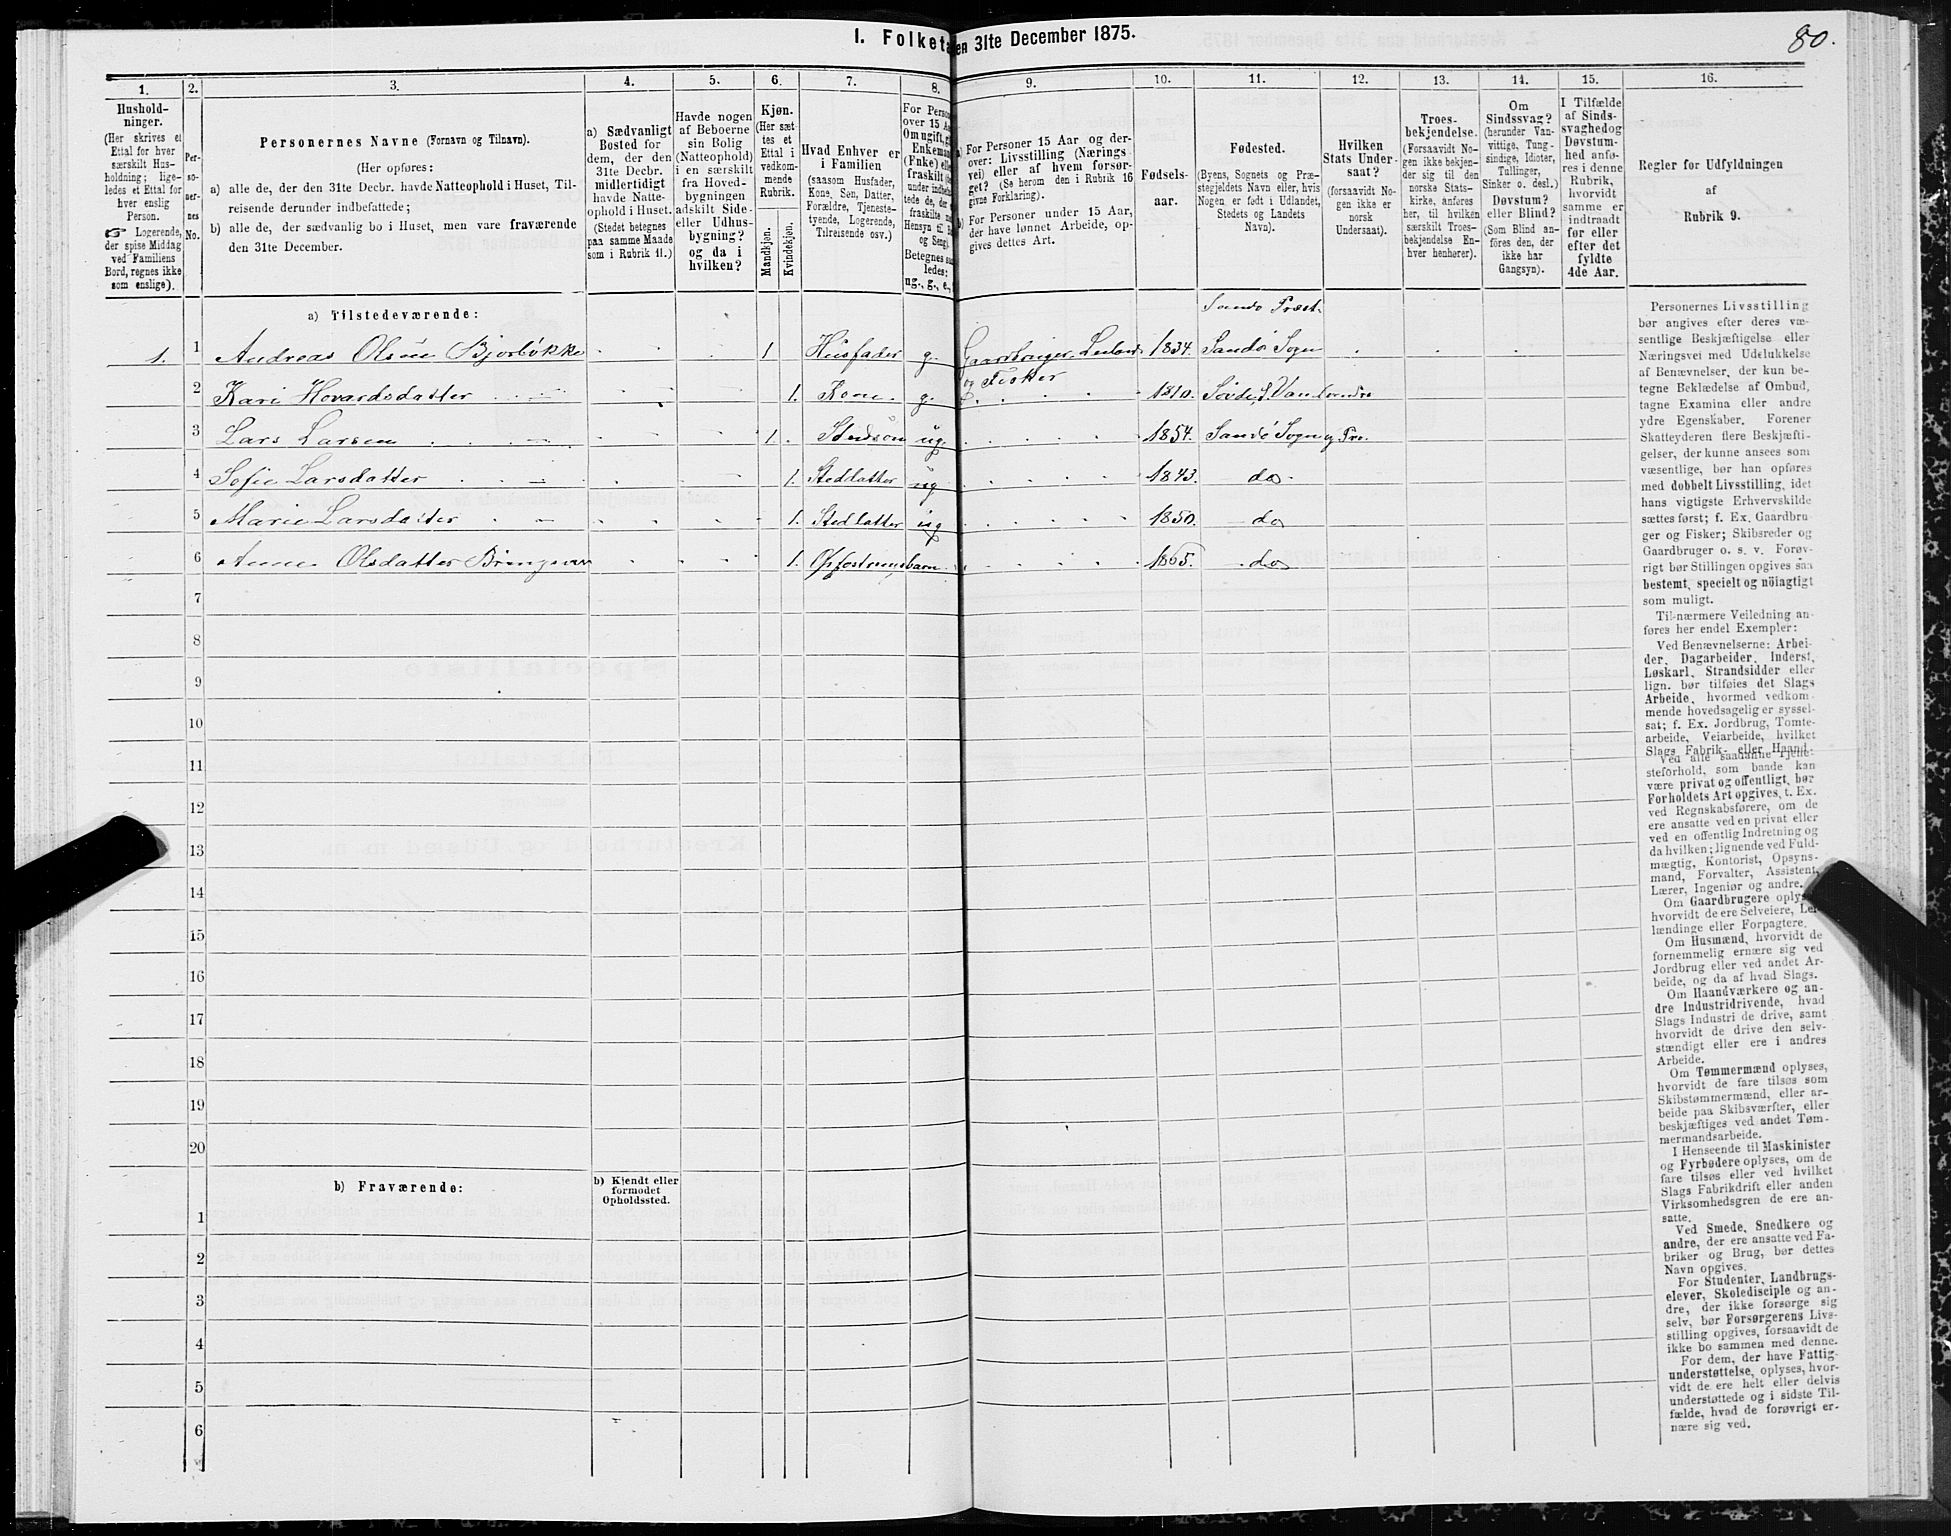 I. Folketa en 31te December 1875.
80.
1.
2.
3.
4.
5.
6.
7.
8.
9.
10.
11.
12.
13.
14.
15.
16.
Hushold-
ninger.
(Her skrives et
Ettal for hver
særskilt Hus-
holdning; lige-
ledes et Ettal for
hver enslig
Person.
☞ Logerende,
der spise Middag
ved Familiens
Bord, regnes ikke
som enslige).
Per-
so-
ner-
nes
No.
Personernes Navne (Fornavn og Tilnavn).
(Her opføres:
a) alle de, der den 31te Decbr. havde Natteophold i Huset, Til-
reisende derunder indbefattede;
b) alle de, der sædvanlig bo i Huset, men vare fraværende
den 31te December.
a) Sædvanligt
Bosted for
dem, der den
31te Decbr.
midlertidigt
havde Natte-
ophold i Huset.
(Stedet betegnes
paa samme Maade
som i Rubrik 11.)
Havde nogen
af Beboerne
sin Bolig
(Natteophold)
i en særskilt
fra Hoved-
bygningen
adskilt Side-
eller Udhus-
bygning?
og da i
hvilken?
Kjøn.
(Her sæt-
tes et
Ettal i
vedkom-
mende
Rubrik.
Mandkjøn.
Kvindekjøn.
Hvad Enhver er
i Familien
(saasom Husfader,
Kone, Søn, Datter,
Forældre, Tjeneste-
tyende, Logerende,
Tilreisende osv.)
For Perso
over 15 Aa
Om ugift, gi
Enkeman
(Fnke) e
fraskilt
under indbe
tede de, de
fraskilte
Hensyn til
og Seng).
Betegnes saa
ledes:
ug., g., e.,
a) For Personer 15 Aar og der-
over: Livsstilling (Nærings-
vei) eller af hvem forsør-
get? (Se herom den i Rubrik 16
givne Forklaring).
b) For Personer under 15 Aar,
der have lønnet Arbeide, op-
gives dettes Art.
Fødsels-
aar.
Fødested.
(Byens, Sognets og Præ-
stegjeldets Navn eller, hvis
Nogen er født i Udlandet,
Stedets og Landets
Navn).
Hvilken
Stats Under-
saat?
(forsaavidt No-
gen ikke er
norsk
Undersaat).
Troes-
bekjendelse.
(Forsaavidt No-
gen ikke bekjen-
der sig til den
norske Stats-
kirke, anføres
her, til hvilken
særskilt Troes-
bekjendelse En-
hver henhører).
Om
Sindssvag?
(herunder Van-
vittige, Tung-
sindige, Idioter,
Tullinger,
Sinker o. desl.)
Døvstum?
eller Blind?
(Som Blind an-
føres den, der
ikke har
Gangsyn).
I Tilfælde
af Sinds-
svaghed og
Døvstum-
hed anfø-
res i denne
Rubrik,
hvorvidt
samme er
indtraadt
før eller
efter det
fyldte
4de Aar.
Regler for Udfyldningen
af
Rubrik 9.
a) Tilstedeværende:
Sandø Præst.
1. 1 Andreas Olsen Bjorbøkke 1 Husfader g. Gaardbruger, Leilænd 1834. Sandø Sogn
og Fisker
2 Kari Hovardsdatter 1. Kone g. 1810. Søvde, P. Vanlvendre
3 Lars Larsen 1. Stedsøn ug. 1854. Sandø Sogn og Pre.
4 Sofie Larsdatter 1. Steddatter ug 1843. do
5 Marie Larsdatter 1. Steddatter ug 1850. do
6 Anne Olsdatter Bringsvor 1. Opfostringsbarn 1865. do
7
8
9
10
11
12
13
14
15
16
17
18
19
20
b) Fraværende:
b) Kjendt eller
formodet
Opholdssted.
1
2
3
4
5
6
Personernes Livsstilling
bør angives efter deres væ-
sentlige Beskjæftigelse eller
Næringsvei med Udelukkelse
af Benævnelser, der kun be-
tegne Beklædelse af Ombud,
tagne Examina eller andre
ydre Egenskaber. Forener
Skatteyderen flere Beskjæfti-
gelser, der kunne ansees som
væsentlige, bør han opføres
med dobbelt Livsstilling, idet
hans vigtigste Erhvervskilde
sættes først; f. Ex. Gaardbru-
ger og Fisker; Skibsreder og
Gaardbruger o. s. v. Forøv-
rigt bør Stillingen opgives saa
bestemt, specielt og nöiagtigt
som muligt.
Til nærmere Veiledning an-
føres her endel Exempler:
Ved Benævnelserne: Arbei-
der, Dagarbeider, Inderst,
Løskarl, Strandsidder eller
lign. bør tilføies det Slags
Arbeide, hvormed vedkom-
mende hovedsagelig er syssel-
sat; f. Ex. Jordbrug, Tomte-
arbeide, Veiarbeide, hvilket
Slags Fabrik- eller Haand-
Ved alle saadanne Tjene-
steforhold, som baade kan
være privat og offentligt, bør
Forholdets Art opgives, t. Ex.
ved Regnskabsførere, om de
ere ansatte ved en privat eller
ved en offentlig Indretning og
da hvilken; lignende ved Fuld-
mægtig, Kontorist, Opsyns-
mand, Forvalter, Assistent,
Lærer, Ingeniør og andre.
Om Gaardbrugere oplyse
hvorvidt de ere Selveiere, Lei-
lændinge eller Forpagtere.
Om Husmænd, hvorvidt de
fornemmelig ernære sig ved
Jordbrug eller ved andet Ar-
beide, og da af hvad Slags.
Om Haandværkere og an-
dre Industridrivende, hvad
Slags Industri de drive, samt
hvorvidt de drive den selv-
stændigt eller ere i andres
Arbeide.
Om Tømmermænd oplyses,
hvorvidt de fare tilsøs som
Skibstømmermænd, eller ar-
beide paa Skibsværfter, eller
beskjæftiges ved andet Tøm-
mermandsarbeide.
I Henseende til Maskinister
og Fyrbødere oplyses, om de
fare tilsøs eller ved hvilket
Slags Fabrikdrift eller anden
Virksomhedsgren de ere an-
satte.
Ved Smede, Snedkere og
andre, der ere ansatte ved Fa-
briker og Brug, bør dettes
Navn opgives.
For Studenter, Landbrugs-
elever, Skoledisciple og an-
dre, der ikke forsørge sig
selv, bør Forsørgerens Livs-
stilling opgives, forsaavidt de
ikke bo sammen med denne.
For dem, der have Fattig-
understøttelse, oplyses, hvor-
vidt de ere helt eller delvis
understøttede og i sidste Til-
fælde, hvad de forøvrigt er-
nære sig ved.